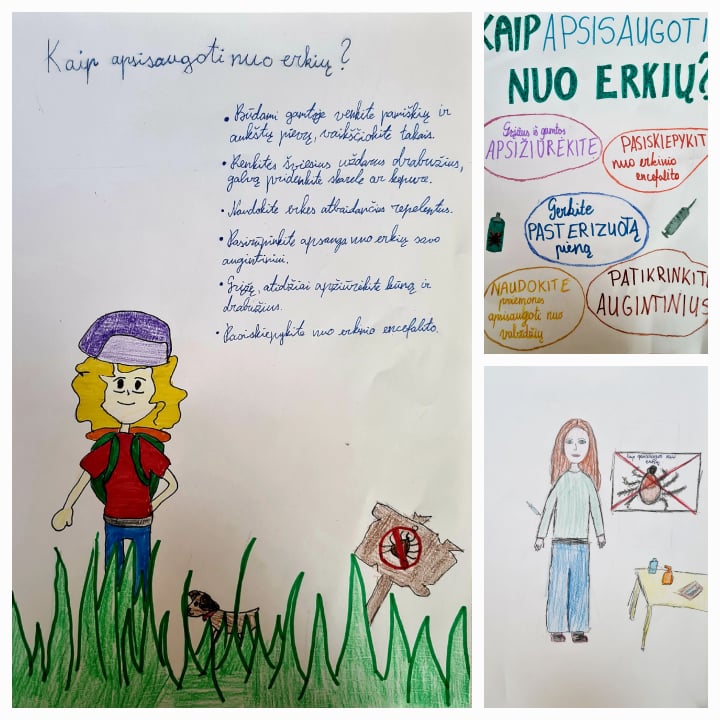 Kaip apsisaugoti nuo erkių?
• Būdami gamtoje venkite pamiškių ir
aukštų pievų, vaikščiokite takais.
• Renkitės šviesius uždarus drabužius,
galvą pridenkite skarele ar kepure.
• Naudokite erkes atbaidančius repelentus.
• Pasirūpinkite apsauga nuo erkių savo
augintiniui.
• Grįžę, atidžiai apžiūrėkite kūną ir
drabužius.
• Pasiskiepykite nuo erkinio encefalito.
KAIP APSISAUGOTI
NUO ERKIŲ?
Grįžus iš gamtos
APSIŽIŪRĖKITE
PASISKIEPYKIT
nuo erkinio
encefalito
Gerkite
PASTERIZUOTĄ
pieną
NAUDOKITE
priemones
apsisaugoti nuo
vabzdžių
PATIKRINKIT
AUGINTINIUS
Kaip apsisaugoti nuo
erkių